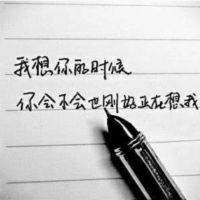 我想你的时候
你会不会也刚好正在想我